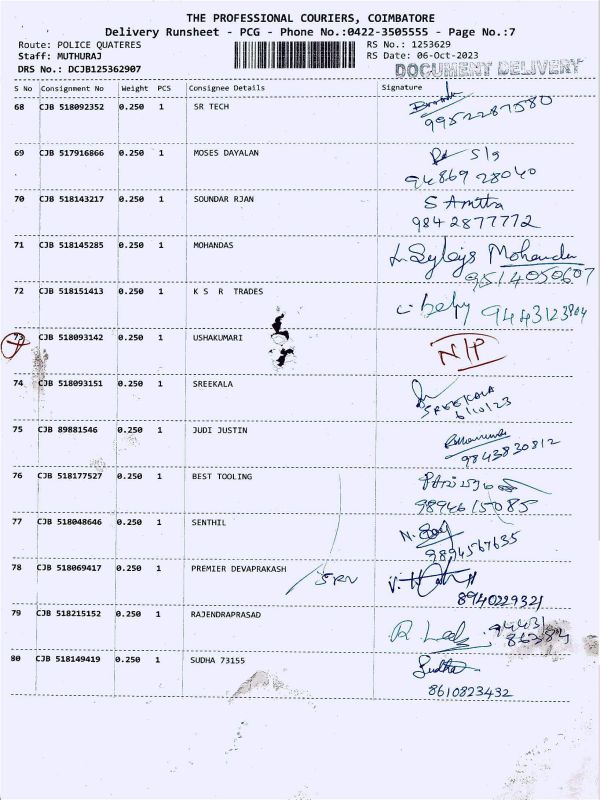 THE PROFESSIONAL COURIERS, COIMBATORE
Delivery Runsheet - PCG - Phone No.:0422-3505555 - Page No.:7
Route: POLICE QUATERES RS No.: 1253629
Staff: MUTHURAJ RS Date: 06-Oct-2023
DRS No.: DCJB125362907 DOCUMENT DELIVERY
S No Consignment No Weight PCS Consignee Details Signature
68 CJB 518092352 0.250 1 SR TECH
9952287580
69 CJB 517916866 0.250 1 MOSES DAYALAN S/g
94869 28040
70 CJB 518143217 0.250 1 SOUNDAR RJAN S Amitra
984 2877772
71 CJB 518145285 0.250 1 MOHANDAS Mohandas
9514050607
72 CJB 518151413 0.250 1 K S R TRADES
9443123804
73 CJB 518093142 0.250 1 USHAKUMARI N/P
74 CJB 518093151 0.250 1 SREEKALA
SREEKALA
6/10/23
75 CJB 89881546 0.250 1 JUDI JUSTIN
9843830812
76 CJB 518177527 0.250 1 BEST TOOLING
9894615085
77 CJB 518048646 0.250 1 SENTHIL
9894567635
78 CJB 518069417 0.250 1 PREMIER DEVAPRAKASH
8940229321
79 CJB 518215152 0.250 1 RAJENDRAPRASAD 94431
86384
80 CJB 518149419 0.250 1 SUDHA 73155 Sudha
8610823432